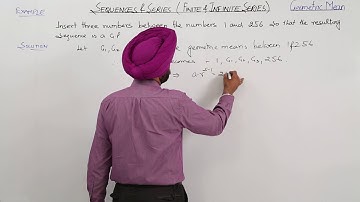 Example Sequences & Series (Finite & Infinite Series) Geometric Mean
Insert three numbers between the numbers 1 and 256 so that the resulting
sequence is a G.P
Solution Let G₁, G₂ geometric means between 1 & 256
1, G₁, G₂, G₃, 256
⇒